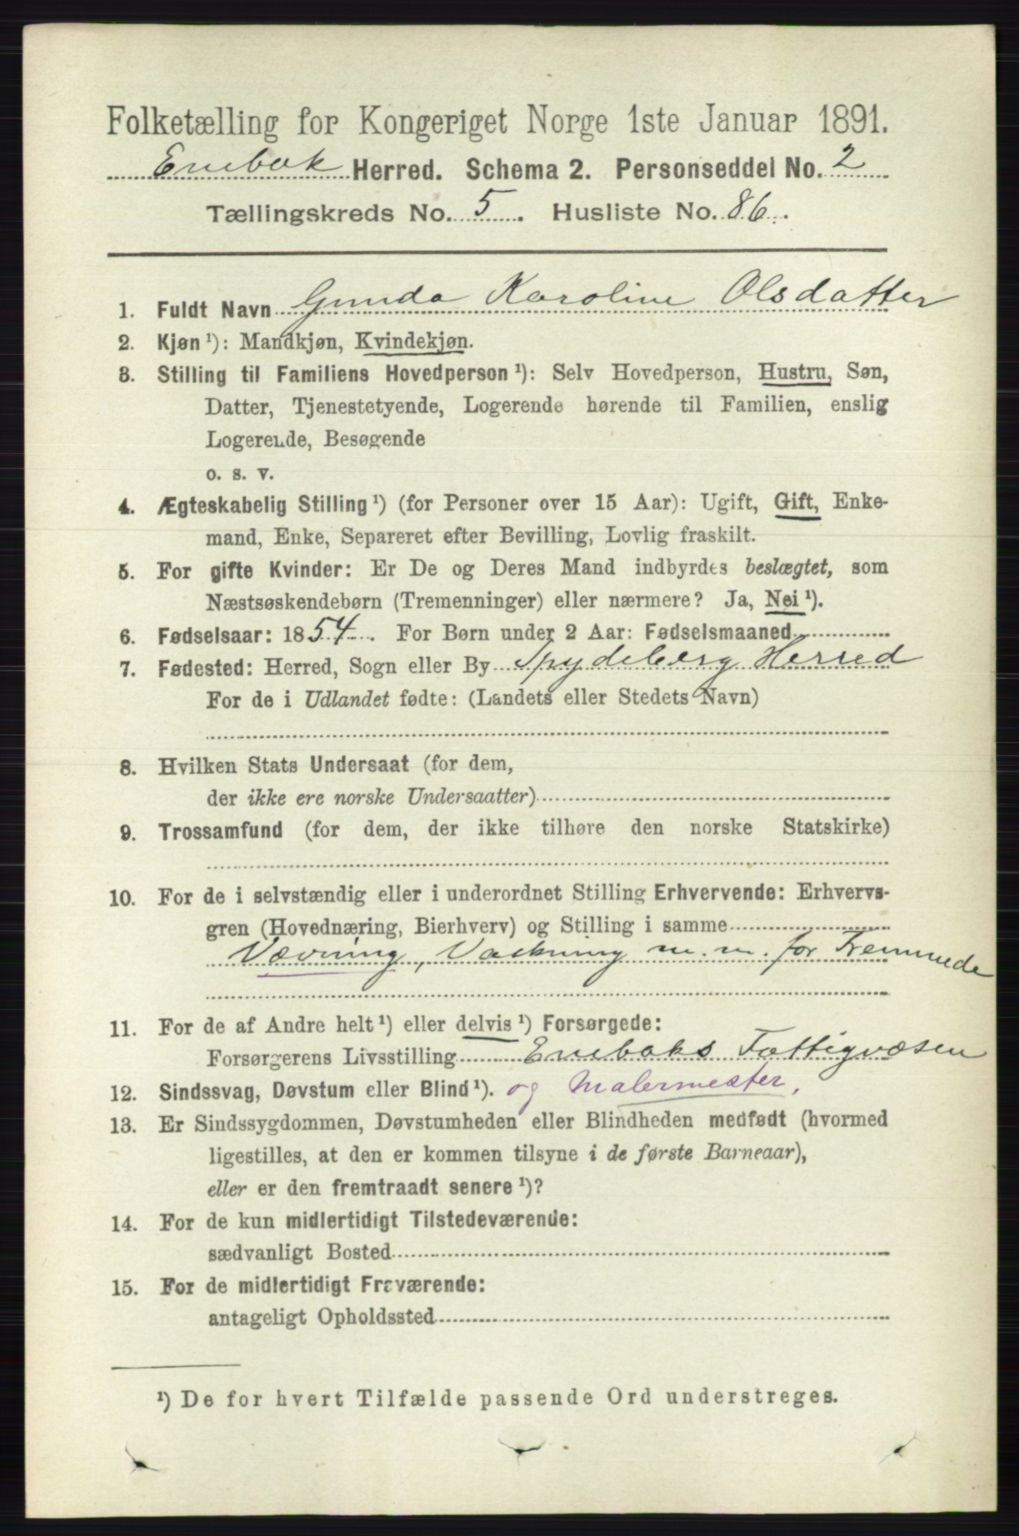 Folketælling for Kongeriget Norge 1ste Januar 1891.
Enebak Herred. Schema 2. Personseddel No. 2
Tællingskreds No. 5. Husliste No. 86.
1. Fuldt Navn Gunda Karoline Olsdatter
2. Kjøn¹): Mandkjøn, Kvindekjøn.
3. Stilling til Familiens Hovedperson¹): Selv Hovedperson, Hustru, Søn,
Datter, Tjenestetyende, Logerende hørende til Familien, enslig
Logerende, Besøgende
o. s. v.
4. Ægteskabelig Stilling¹) (for Personer over 15 Aar): Ugift, Gift, Enke-
mand, Enke, Separeret efter Bevilling, Lovlig fraskilt.
5. For gifte Kvinder: Er De og Deres Mand indbyrdes beslægtet, som
Næstsøskendebørn (Tremenninger) eller nærmere? Ja, Nei¹).
6. Fødselsaar: 1854. For Børn under 2 Aar: Fødselsmaaned
7. Fødested: Herred, Sogn eller By Spydeberg Herred
For de i Udlandet fødte: (Landets eller Stedets Navn)
8. Hvilken Stats Undersaat (for dem,
der ikke ere norske Undersaatter)
9. Trossamfund (for dem, der ikke tilhøre den norske Statskirke)
10. For de i selvstændig eller i underordnet Stilling Erhvervende: Erhvervs-
gren (Hovednæring, Bierhverv) og Stilling i samme
Vævning, Vaskning m. m. for Fremmede
11. For de af Andre helt¹) eller delvis¹) Forsørgede:
Forsørgerens Livsstilling Enebaks Fattigvæsen
12. Sindssvag, Døvstum eller Blind¹). og Malermester.
13. Er Sindssygdommen, Døvstumheden eller Blindheden medfødt (hvormed
ligestilles, at den er kommen tilsyne i de første Barneaar),
eller er den fremtraadt senere¹)?
14. For de kun midlertidigt Tilstedeværende:
sædvanligt Bosted
15. For de midlertidigt Fraværende:
antageligt Opholdssted
¹) De for hvert Tilfælde passende Ord understreges.